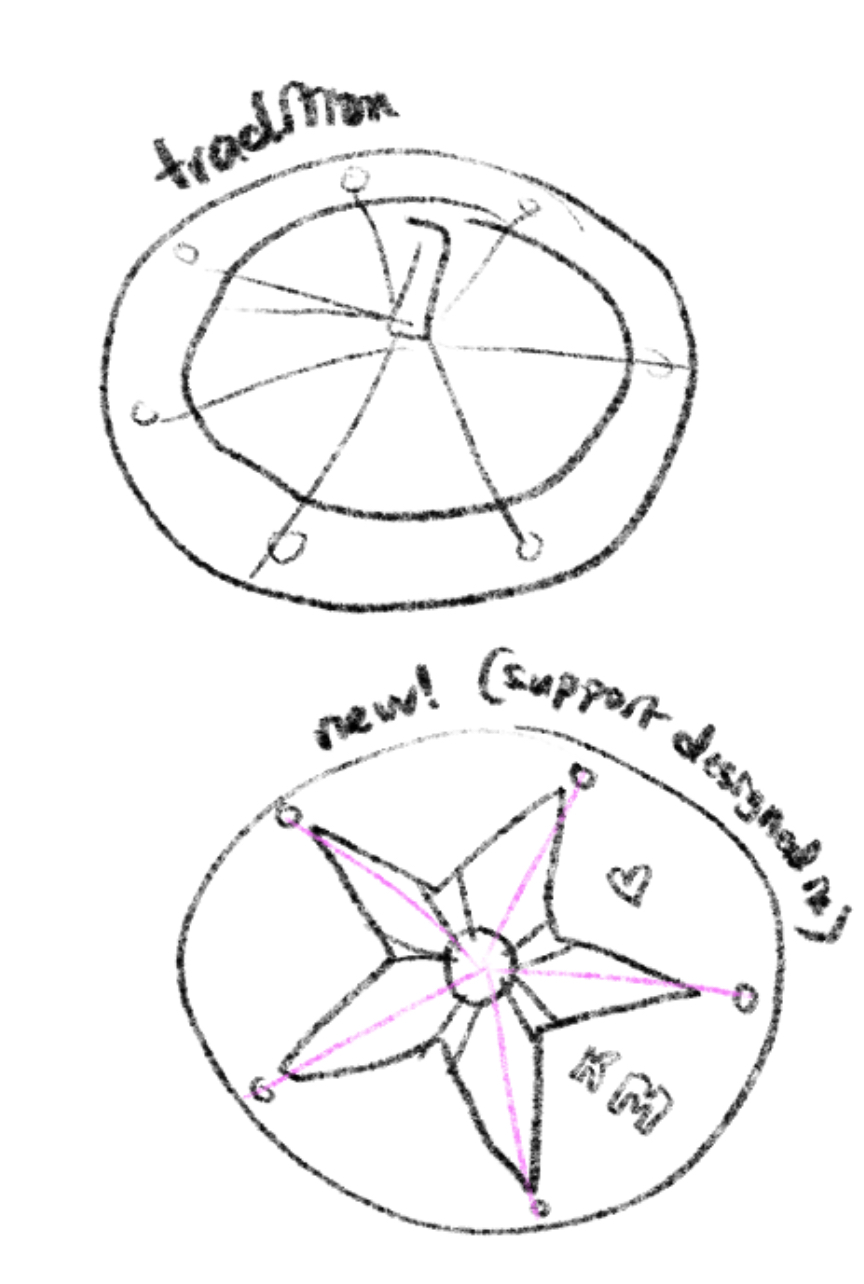 tradition
new! (support designed in)
KM